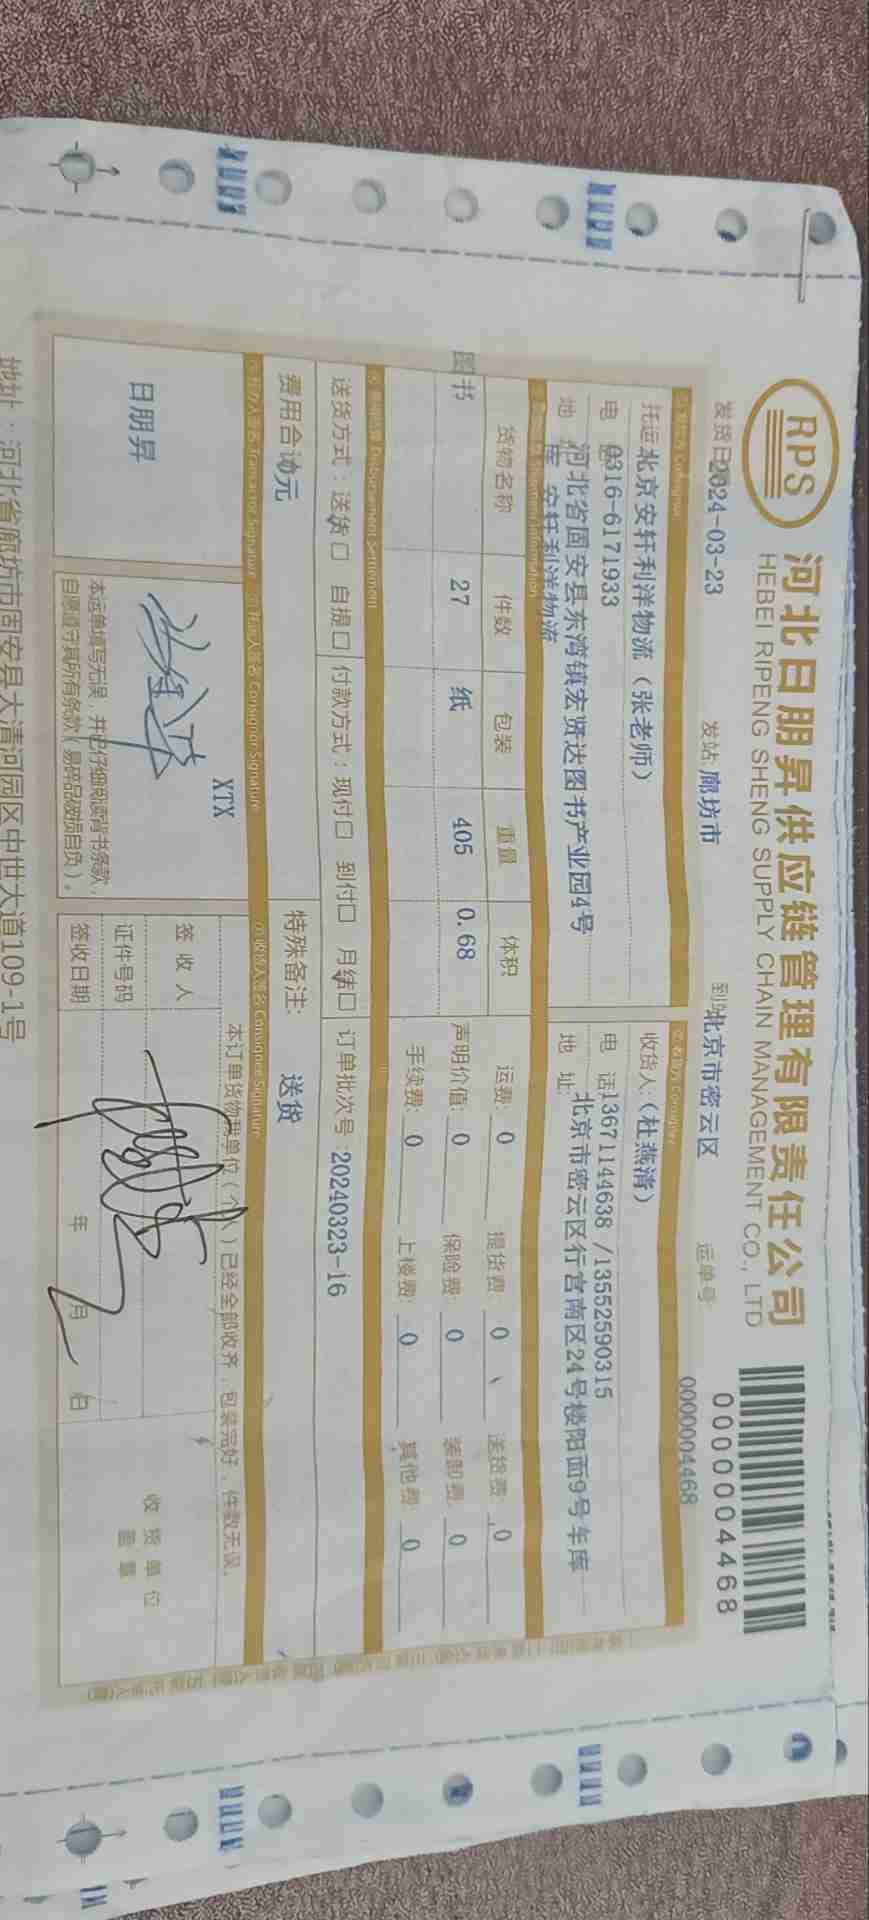 RPS
河北日朋昇供应链管理有限责任公司
HEBEI RIPENG SHENG SUPPLY CHAIN MANAGEMENT CO., LTD
0000004468
发货日 2024-03-23 发站: 廊坊市 到站 北京市密云区 运单号 0000004468
托运 北京安轩利洋物流（张老师）
电 0316-6171933
地 河北省固安县东湾镇宏贤达图书产业园4号
库 安轩利洋物流
收货人:（杜燕清）
电 话 13671144638 /13552590315
地 址: 北京市密云区行宫南区24号楼阳面9号车库
货物名称 件数 包装 重量 体积
图书 27 纸 405 0.68
运费: 0 提货费: 0 送货费: 0
声明价值: 0 保险费: 0 装卸费: 0
手续费: 0 上楼费: 0 其他费: 0
送货方式: 送货 自提 付款方式: 现付 到付 月结 订单批次号: 20240323-16
费用合计 元 特殊备注: 送货
Consignor Signature
Consignee Signature
日朋昇
XTX
本运单填写无误，并已仔细阅读背书条款，
自愿遵守其所有条款（易碎品破损自负）。
本订单货物我单位（个人）已经全部收齐，包装完好，件数无误。
签收人
证件号码
签收日期 年 月 日
收货单位
盖章
地址：河北省廊坊市固安县大清河园区中世大道109-1号